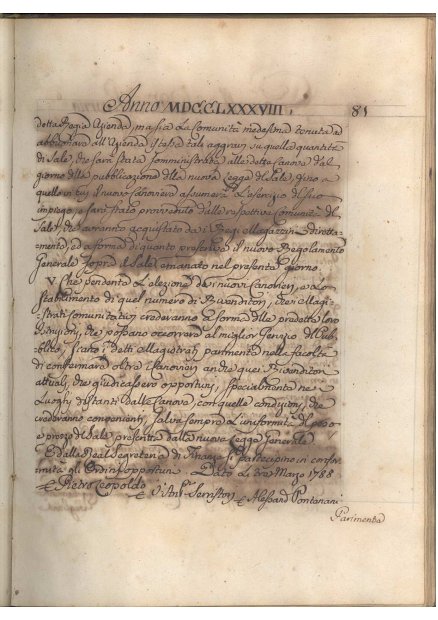 Anno MDCCLXXXVIII. 81
detta Regia Azienda, ma sia la Comunità medesima tenuta ad
abbonare all'Azienda istessa tali aggravi su quella quantità
di Sale, che sarà stata somministrata alle dette Canove dal
giorno della pubblicazione della nuova Legge del Sale, fino a
quello in cui il nuovo Canoviere assumerà l'esercizio del suo
impiego, e sarà stato provveduto dalle respettive Comunità del
Sale, che avranno acquistato da i Regi Magazzini diretta-
mente, ed a forma di quanto prescrive il nuovo Regolamento
Generale sopra il Sale emanato nel presente giorno.
V. Che pendente l'elezione de i nuovi Canovieri, e lo
stabilimento di quel numero di Rivenditori, che i Magi-
strati Comunitativi crederanno a forma delle predette loro
Istruzioni, che possano occorrere al miglior servizio del Pub-
blico, siano i detti Magistrati parimente nella facoltà
di confermare oltre i Canovieri anche quei Rivenditori
attuali, che giudicassero opportuni, specialmente ne i
Luoghi distanti dalla Canova, con quelle condizioni, che
crederanno convenienti, salva sempre l'uniformità del peso,
e prezzo del Sale prescritta dalla nuova Legge Generale
E dalla Real Segreteria di Finanze si partecipino in confor-
mità gli Ordini opportuni. Dato Li tre Marzo 1788
Pietro Leopoldo V. Ant. Serristori Alessandro Pontenani
Parimente